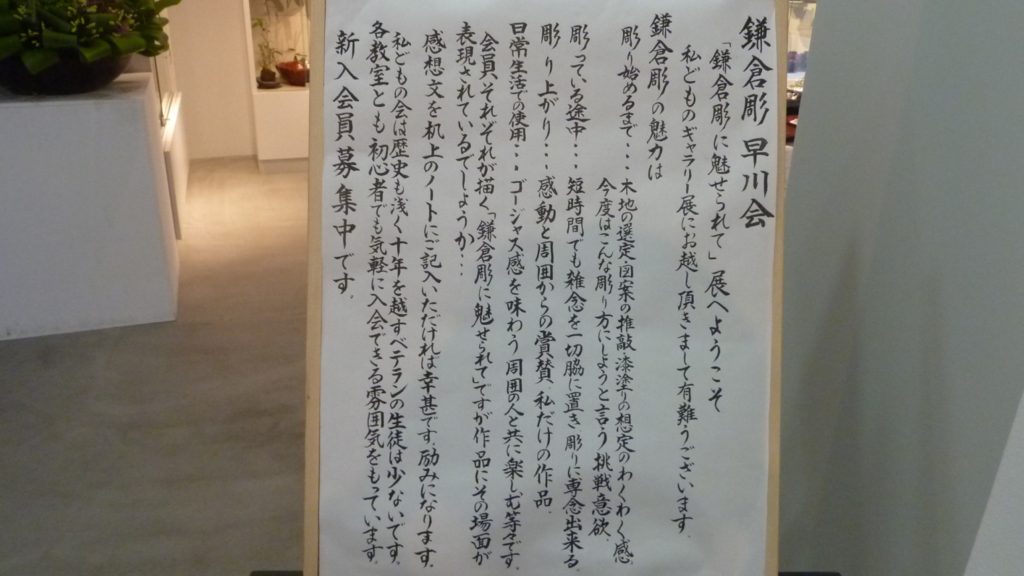 鎌倉彫 早川会
「鎌倉彫に魅せられて」展へようこそ
私どものギャラリー展にお越し頂きまして有難うございます
鎌倉彫の魅力は
彫り始めるまで・・・木地の選定図案の推敲漆塗りの想定のわくわく感
今度はこんな彫り方にしようと言う挑戦意欲
彫っている途中・・・短時間でも雑念を一切脇に置き彫りに専念出来る
彫り上がり・・・感動と周囲からの賞賛、私だけの作品
日常生活での使用・・・ゴージャス感を味わう周囲の人と共に楽しむ等々です
会員それぞれが描く「鎌倉彫に魅せられて」ですが作品にその場面が
表現されているでしょうか・・・
感想文を机上のノートにご記入いただければ幸甚です。励みになります。
私どもの会は歴史も浅く十年を越すベテランの生徒は少ないです。
各教室とも初心者でも気軽に入会できる雰囲気をもっています
新入会員募集中です。